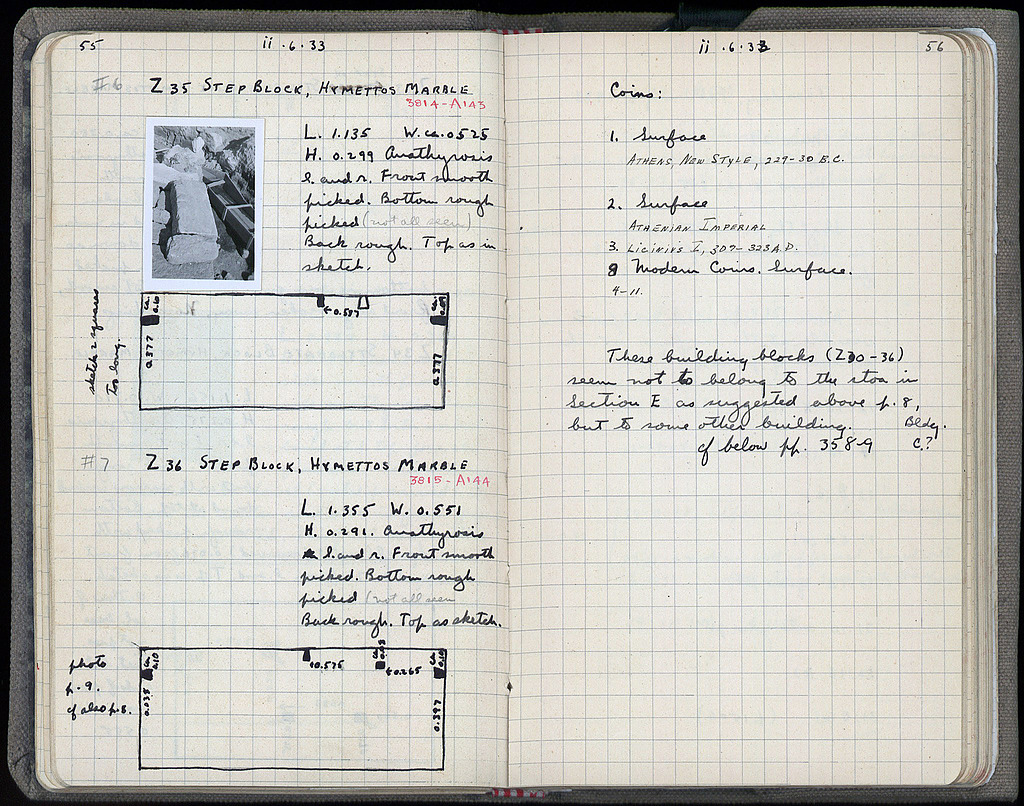 55
ii.6.33
#6
Z 35 STEP BLOCK, HYMETTOS MARBLE
3814-A143
L. 1.135 W. ca. 0.525
H. 0.299 Anathyrosis
l. and r. Front smooth
picked. Bottom rough
picked (not all seen)
Back rough. Top as in
sketch.
sketch 2 squares
too long.
ca.
0.10
0.377
←0.597
ca.
0.377
#7
Z 36 STEP BLOCK, HYMETTOS MARBLE
3815-A144
L. 1.355 W. 0.551
H. 0.291. Anathyrosis
l. and r. Front smooth
picked. Bottom rough
picked (not all seen
Back rough. Top as sketch.
photo
p. 9.
cf also p. 8.
ca.
0.10
0.575
←0.265
ca.
0.10
0.397
ii.6.33
56
Coins:
1. Surface
ATHENS, NEW STYLE, 229-30 B.C.
2. Surface
ATHENIAN IMPERIAL
3. LICINIUS I, 307-323 A.D.
8 Modern Coins. Surface.
4-11.
These building blocks (Z30-36)
seem not to belong to the stoa in
Section E as suggested above p. 8,
but to some other building. Bldg.
cf below pp. 358-9 C?